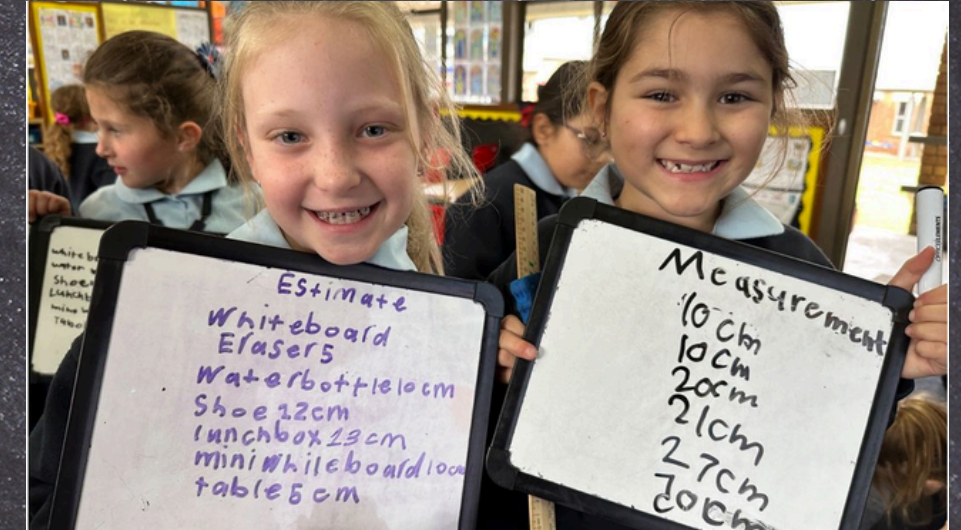 Estimate
Whiteboard
Eraser 5
Waterbottle 10cm
Shoe 12cm
lunchbox 13cm
miniwhileboard 10cm
table 5cm
Measurement
10cm
10cm
20cm
21cm
27cm
70cm
water
Shoe